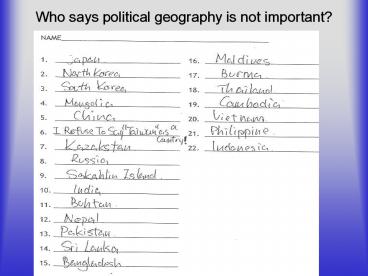 Who says political geography is not important?
NAME
1. Japan
2. North Korea
3. South Korea
4. Mongolia
5. China
6. I Refuse To Say "Taiwan" as a Country!
7. Kazakstan
8. Russia
9. Sakahlin Island
10. India
11. Bohtan
12. Nepal
13. Pakistan
14. Sri Lanka
15. Bangladesh
16. Maldives
17. Burma
18. Thailand
19. Cambodia
20. Vietnam
21. Philippine
22. Indonesia